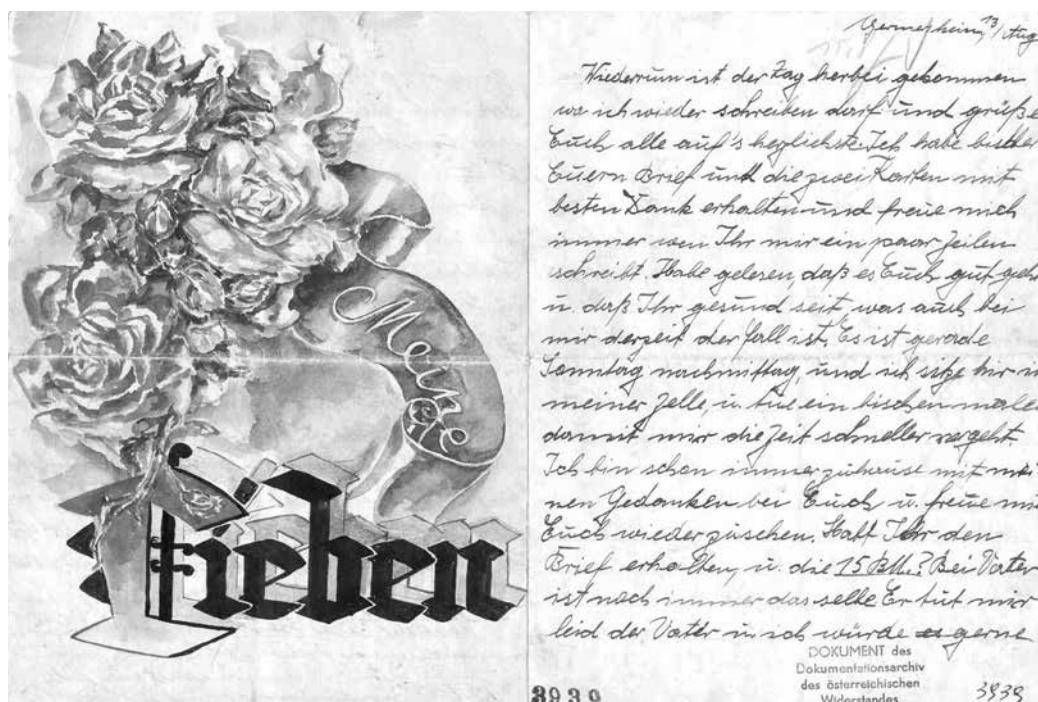 Meine
Lieben
Germersheim, 13/Aug
Wiederrum ist der Tag herbei gekommen
wo ich wieder schreiben darf und grüße
Euch alle auf's herzlichste. Ich habe bisher
Euern Brief und die zwei Karten mit
besten Dank erhalten und freue mich
immer wen Ihr mir ein paar Zeilen
schreibt. Habe gelesen, daß es Euch gut geht
u. daß Ihr gesund seit, was auch bei
mir derzeit der fall ist. Es ist gerade
Sonntag nachmittag, und ich sitze hir in
meiner Zelle, u. tue ein bischen malen
damit mir die Zeit schneller vergeht.
Ich bin schon immer zuhause mit mei
nen Gedanken bei Euch u. freue mi
Euch wiederzusehen. Habt Ihr den
Brief erhalten, u. die 15 RM.? Bei Vater
ist noch immer das selbe Er tut mir
leid der Vater u. ich würde es gerne
DOKUMENT des
Dokumentationsarchiv
des österreichischen
Widerstandes
3939
3939